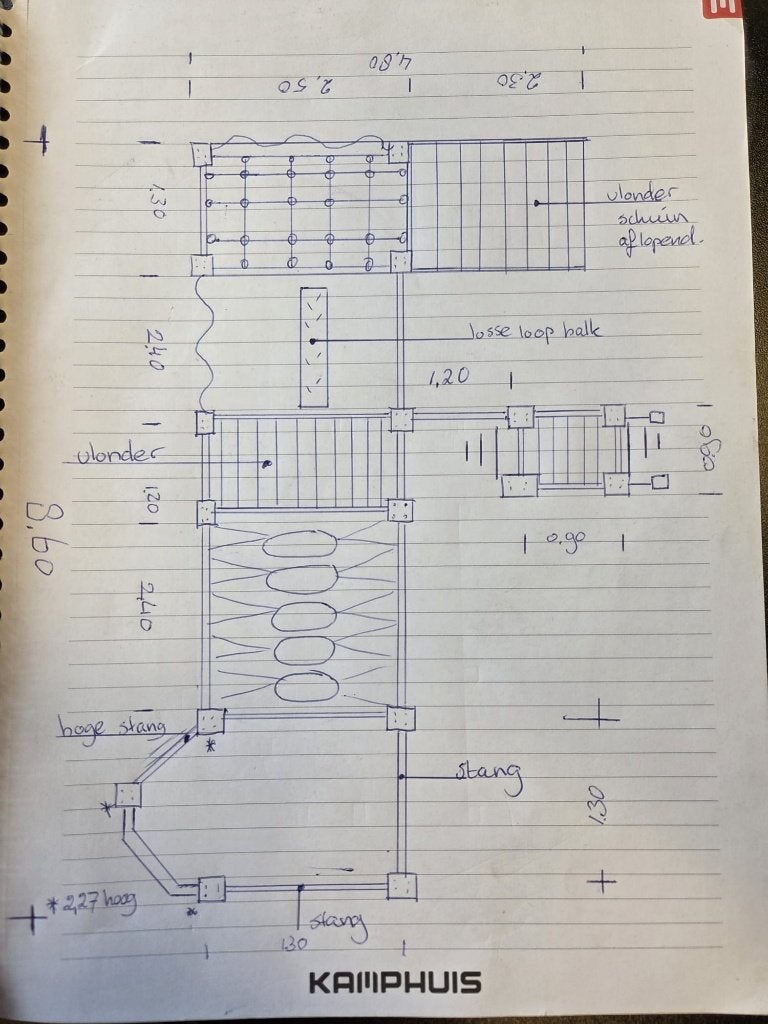 4,80
2,50
2,30
1,30
vlonder
schuin
aflopend.
2,40
losse loop balk
1,20
vlonder
0.90
1,20
8,60
0.90
2,40
hoge stang
*
stang
*
1.30
* 2,27 hoog
*
stang
1.30
KAMPHUIS